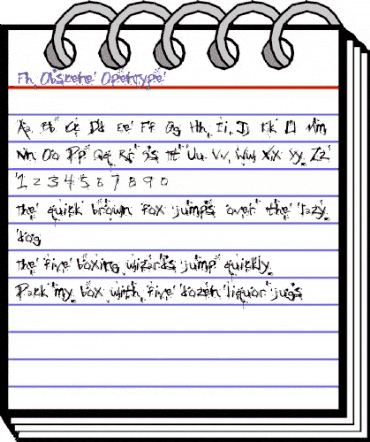 Fh_Obscene Opentype
Aa Bb Cc Dd Ee Ff Gg Hh Ii Jj Kk Ll Mm
Nn Oo Pp Qq Rr Ss Tt Uu Vv Ww Xx Yy Zz
1 2 3 4 5 6 7 8 9 0
The quick brown fox jumps over the lazy
dog
The five boxing wizards jump quickly
Pack my box with five dozen liquor jugs